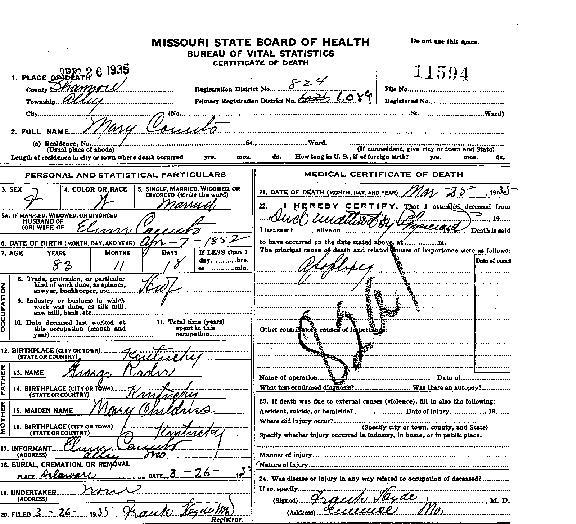 MISSOURI STATE BOARD OF HEALTH
BUREAU OF VITAL STATISTICS
CERTIFICATE OF DEATH
Do not use this space.
APR 26 1935
11594
1. PLACE OF DEATH
County Shannon
Township Alley
City (No. St. Ward)
Registration District No. 824
Primary Registration District No. 6089
File No.
Registered No.
2. FULL NAME Mary
(a) Residence, No. St. Ward.
(Usual place of abode) (If nonresident, give city or town and State)
Length of residence in city or town where death occurred yrs. mos. ds. How long in U. S., if of foreign birth? yrs. mos. ds.
PERSONAL AND STATISTICAL PARTICULARS
3. SEX F
4. COLOR OR RACE W
5. SINGLE, MARRIED, WIDOWED, OR DIVORCED (write the word)
Married
5a. IF MARRIED, WIDOWED, OR DIVORCED
HUSBAND OF
(OR) WIFE OF
6. DATE OF BIRTH (MONTH, DAY, AND YEAR) Apr-7-1852
7. AGE YEARS MONTHS DAYS If LESS than 1 day, hrs. or min.
11 18
OCCUPATION
8. Trade, profession, or particular kind of work done, as spinner, sawyer, bookkeeper, etc.
9. Industry or business in which work was done, as silk mill, saw mill, bank, etc.
10. Date deceased last worked at this occupation (month and year)
11. Total time (years) spent in this occupation
12. BIRTHPLACE (CITY OR TOWN) Kentucky
(STATE OR COUNTRY)
FATHER
13. NAME
14. BIRTHPLACE (CITY OR TOWN) Kentucky
(STATE OR COUNTRY)
MOTHER
15. MAIDEN NAME Mary Childris
16. BIRTHPLACE (CITY OR TOWN) Kentucky
(STATE OR COUNTRY)
17. INFORMANT
(ADDRESS) Alley Mo
18. BURIAL, CREMATION, OR REMOVAL
PLACE Delaware DATE 3-26-
19. UNDERTAKER None
(ADDRESS)
20. FILED 3-26-1935 Frank Hyde MD
Registrar.
MEDICAL CERTIFICATE OF DEATH
21. DATE OF DEATH (MONTH, DAY, AND YEAR) Mar 25- 1935
22. I HEREBY CERTIFY, That I attended deceased from
Died without Physician
I last saw h alive on Death is said
to have occurred on the date stated above, at m.
The principal cause of death and related causes of importance were as follows:
Date of onset
Apoplexy
Other contributory causes of importance:
Name of operation Date of
What test confirmed diagnosis? Was there an autopsy?
23. If death was due to external causes (violence), fill in also the following:
Accident, suicide, or homicide? Date of injury 19
Where did injury occur?
(Specify city or town, county, and State)
Specify whether injury occurred in industry, in home, or in public place.
Manner of injury
Nature of injury
24. Was disease or injury in any way related to occupation of deceased?
If so, specify
(Signed) Frank Hyde M. D.
(Address) Eminence Mo.